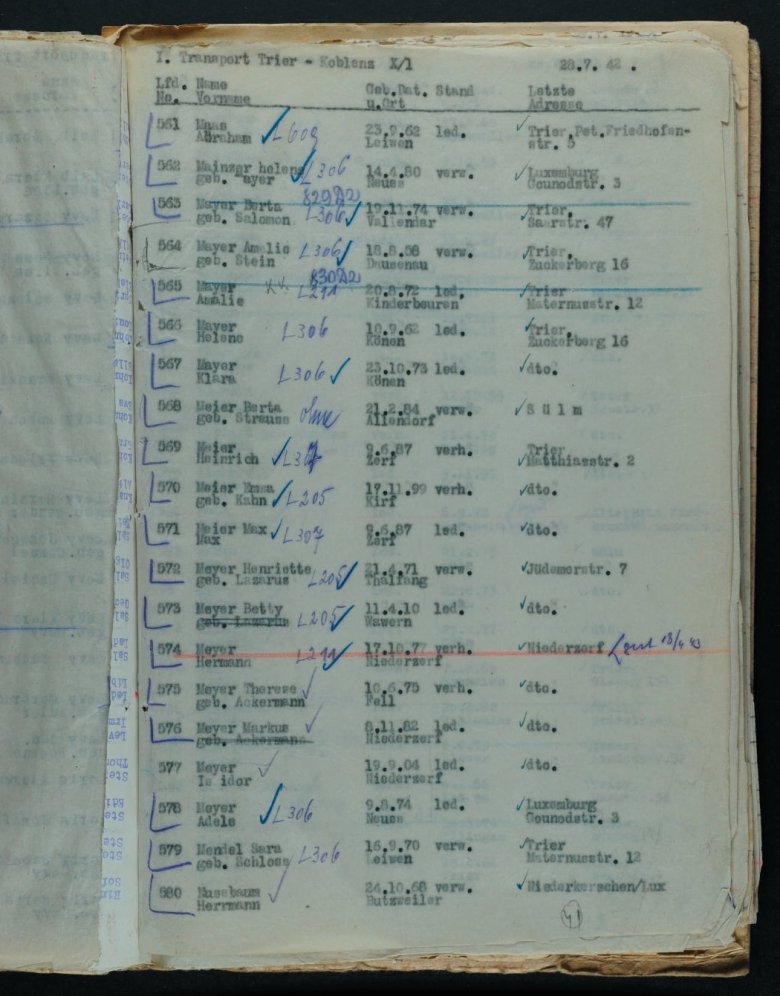 I. Transport Trier - Koblenz X/1 28.7. 42 .
Lfd. Name Geb.Dat. Stand Letzte
No. Vorname u.Ort Adresse
561 Maas 23.9.62 led. ✓Trier,Pet.Friedhofen-
Abraham ✓L609 Leiwen str. 5
562 Mainzer helene ✓L306 14.4.80 verw. ✓Luxemburg
geb. ayer Neuss Gounodstr. 3
829
563 Mayer Berta 19.11.74 verw. ✓Trier,
geb. Salomon L306✓ Vallendar Saarstr. 47
564 Mayer Amalie L306✓ 18.8.58 verw. ✓Trier,
geb. Stein Dausenau Zuckerberg 16
830
565 Mayer 20.8.72 led. ✓Trier
Amalie L211 Kinderbeuren Maternusstr. 12
566 Mayer L306 10.9.62 led. ✓Trier,
Helene Könen Zuckerberg 16
567 Mayer 23.10.73 led. ✓dto.
Klara L306✓ Könen
568 Meier Berta ohne 21.2.84 verw. ✓S ü l m
geb. Strauss Allendorf
569 Meier 9.6.87 verh. Trier
Heinrich ✓L307 Zerf ✓Matthiasstr. 2
570 Meier Emma 17.11.99 verh. ✓dto.
geb. Kahn ✓L205 Kirf
571 Meier Max ✓L307 9.6.87 led. ✓dto.
Max Zerf
572 Meyer Henriette 21.4.71 verw. ✓Jüdemerstr. 7
geb. Lazarus L205✓ Thalfang
573 Meyer Betty 11.4.10 led. ✓dto.
geb. Lazarus L205✓ Wawern
574 Meyer 17.10.77 verh. ✓Niederzerf
Hermann L211✓ Niederzerf
575 Meyer Therese ✓ 10.6.75 verh. ✓dto.
geb. Ackermann Fell
576 Meyer Markus ✓ 8.11.82 led. ✓dto.
geb. Ackermann Niederzerf
577 Meyer ✓ 19.9.04 led. ✓dto.
Is idor Niederzerf
578 Meyer 9.8.74 led. ✓Luxemburg
Adele ✓L306 Neuss Gounodstr. 3
579 Mendel Sara 16.9.70 verw. ✓Trier
geb. Schloss L306 Leiwen Maternusstr. 12
580 Nussbaum ✓ 24.10.68 verw. ✓Niederkerschen/Lux
Herrmann Butzweiler
41